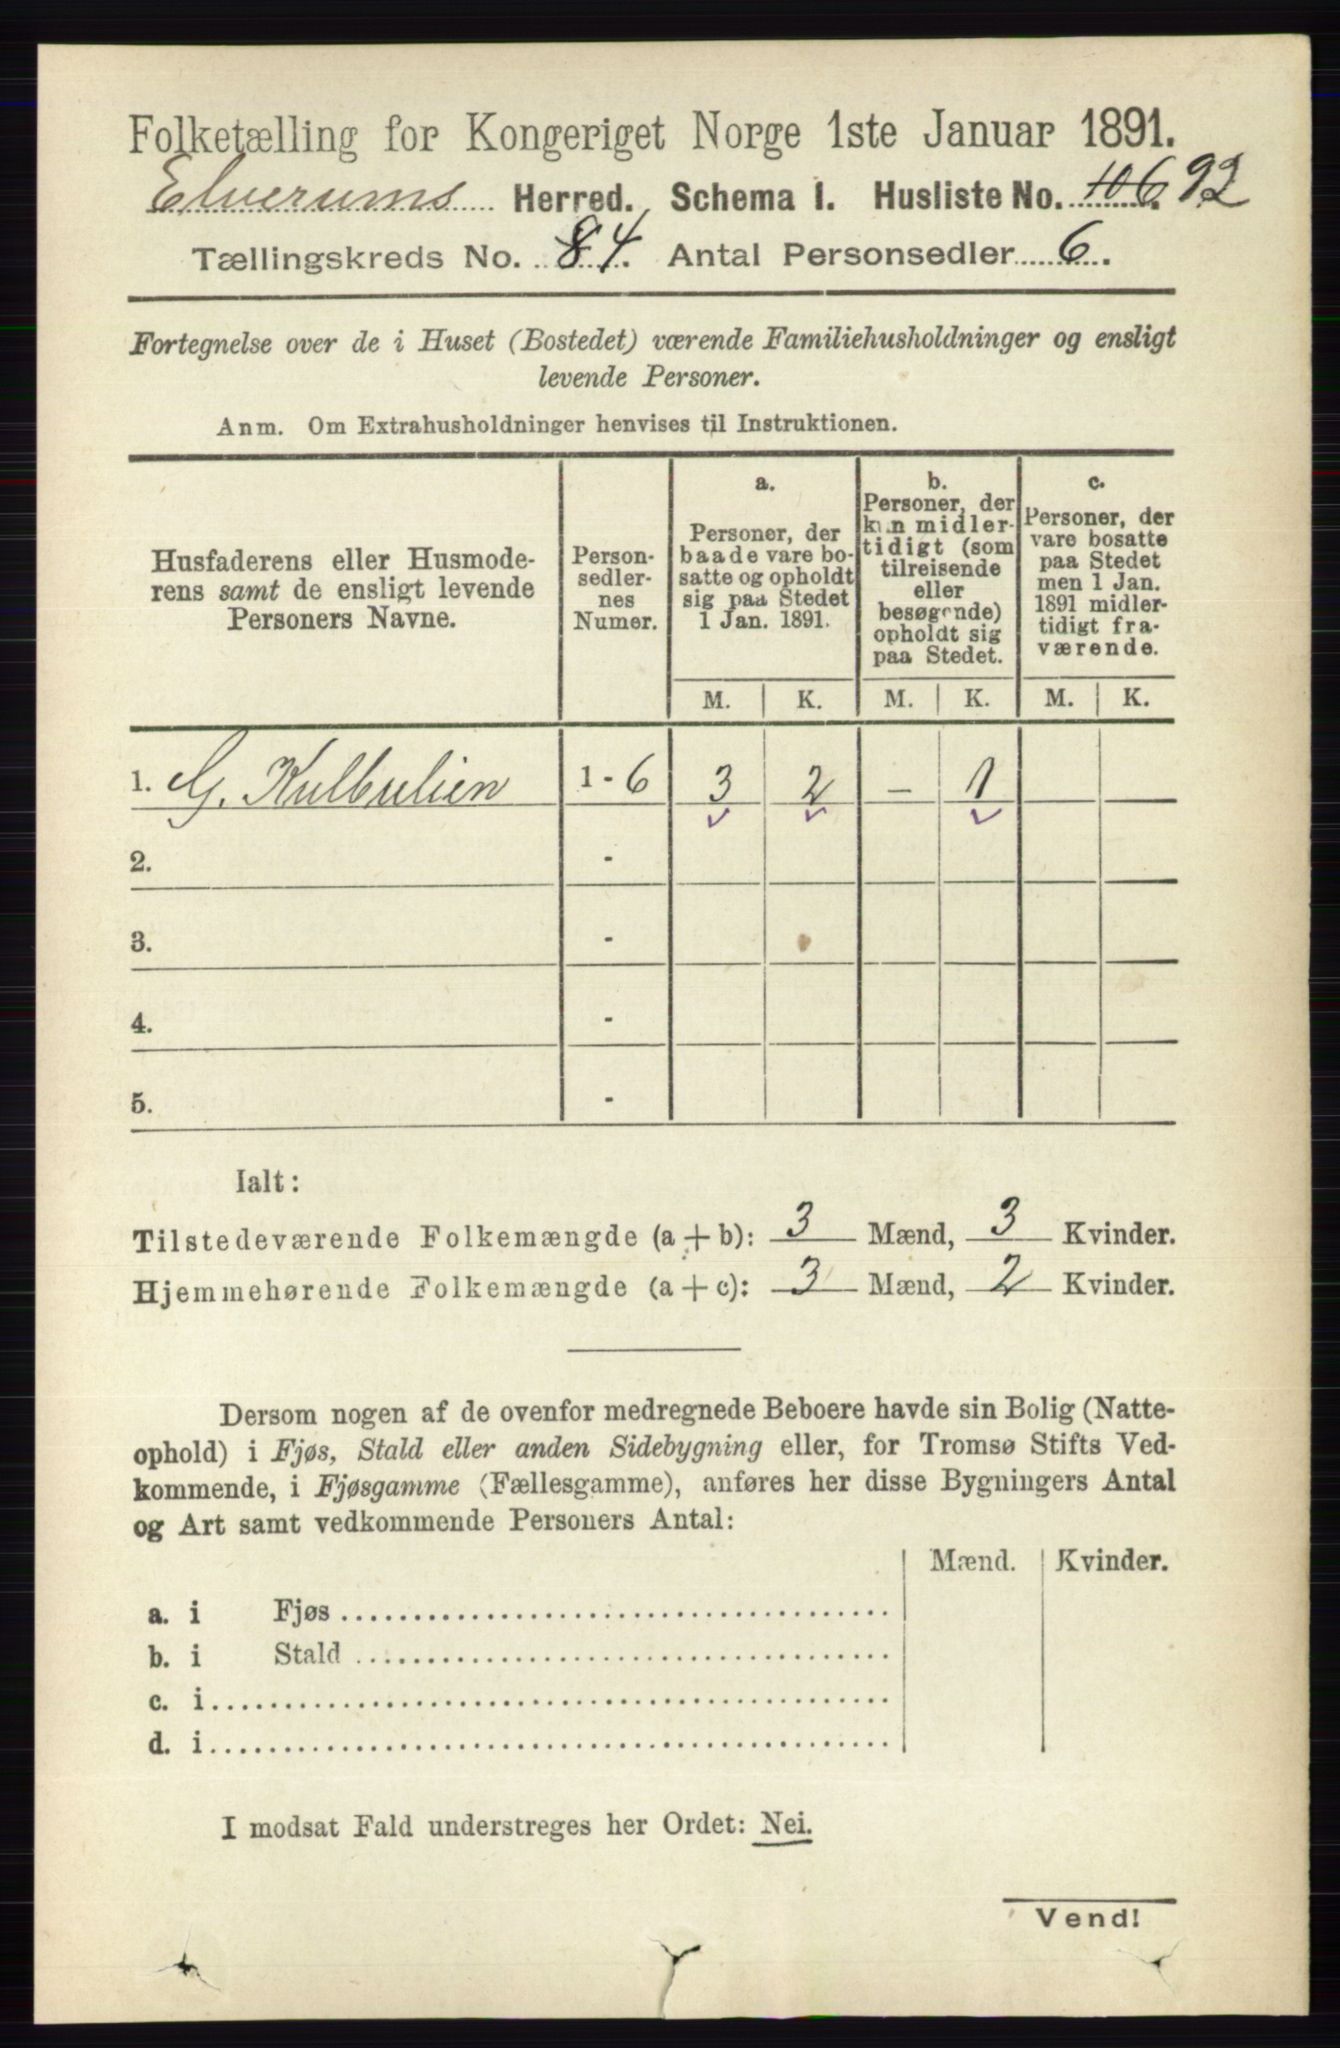 Folketælling for Kongeriget Norge 1ste Januar 1891.
Elverums Herred. Schema I. Husliste No. 106 92
Tællingskreds No. 84. Antal Personsedler 6.
Fortegnelse over de i Huset (Bostedet) værende Familiehusholdninger og ensligt
levende Personer.
Anm. Om Extrahusholdninger henvises til Instruktionen.
Husfaderens eller Husmode-
rens samt de ensligt levende
Personers Navne.
Person-
sedler-
nes
Numer.
a.
Personer, der
baade vare bo-
satte og opholdt
sig paa Stedet
1 Jan. 1891.
b.
Personer, der
kun midler-
tidigt (som
tilreisende
eller
besøgende)
opholdt sig
paa Stedet.
c.
Personer, der
vare bosatte
paa Stedet
men 1 Jan.
1891 midler-
tidigt fra-
værende.
M. K. M. K. M. K.
1. G. Kulbulien 1 - 6 3 2 - 1
2. -
3. -
4. -
5. -
Ialt:
Tilstedeværende Folkemængde (a + b): 3 Mænd, 3 Kvinder.
Hjemmehørende Folkemængde (a + c): 3 Mænd, 2 Kvinder.
Dersom nogen af de ovenfor medregnede Beboere havde sin Bolig (Natte-
ophold) i Fjøs, Stald eller anden Sidebygning eller, for Tromsø Stifts Ved-
kommende, i Fjøsgamme (Fællesgamme), anføres her disse Bygningers Antal
og Art samt vedkommende Personers Antal:
Mænd. Kvinder.
a. i Fjøs
b. i Stald
c. i
d. i
I modsat Fald understreges her Ordet: Nei.
Vend!